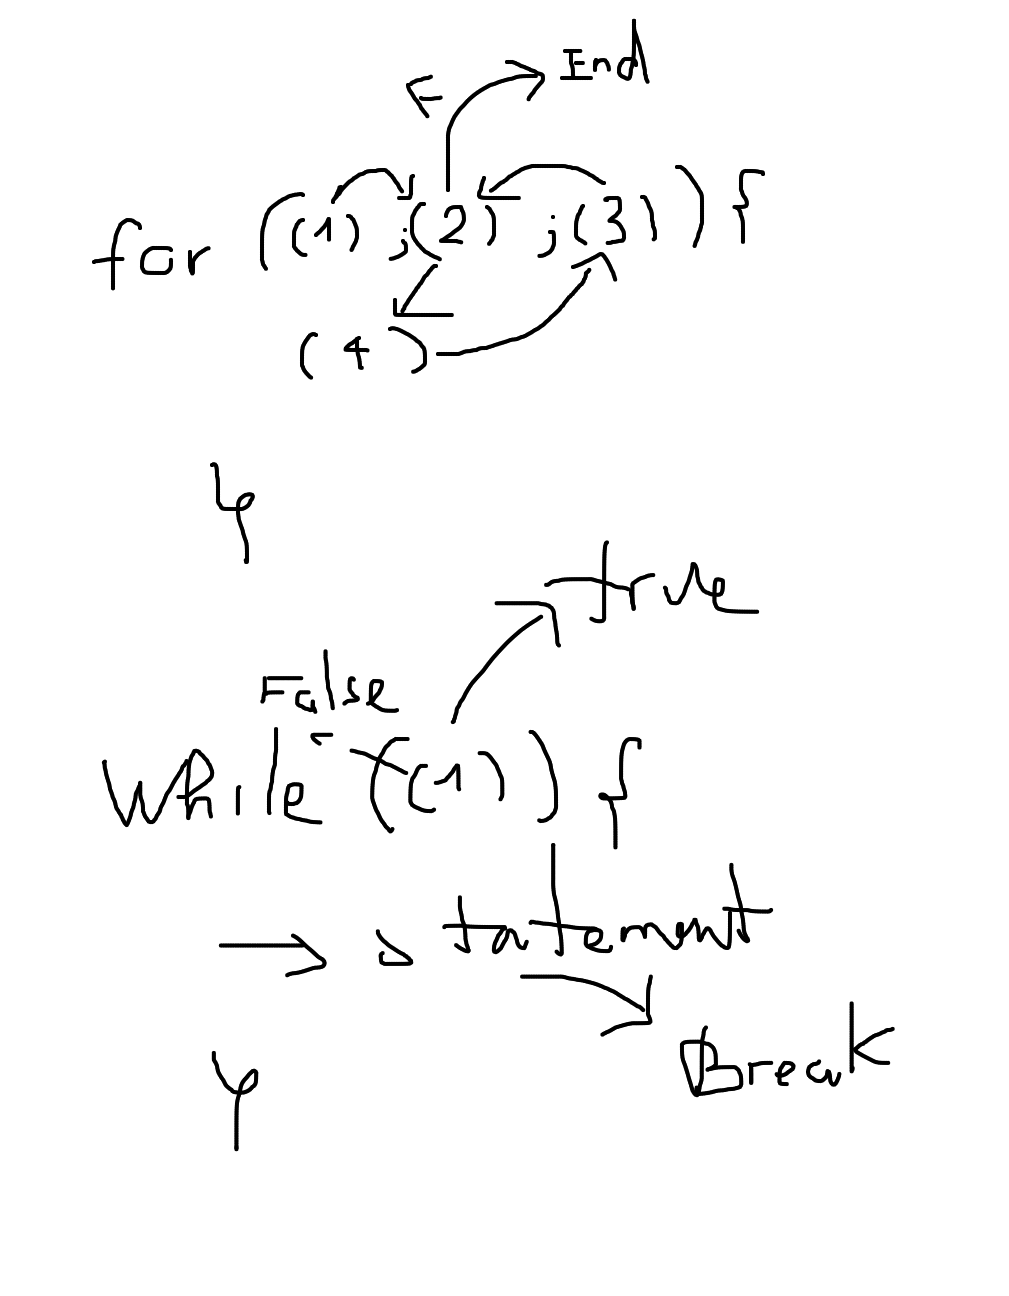 F End
for ((1) ;(2) ;(3)) {
(4)
}
true
False
While ((1)) {
statement
Break
}